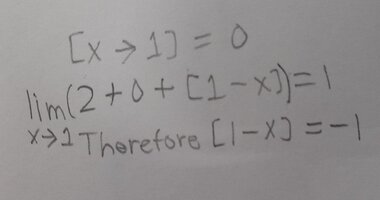 [x → 1] = 0
lim(2 + 0 + [1 - x]) = 1
x→1 Therefore [1-x] = -1